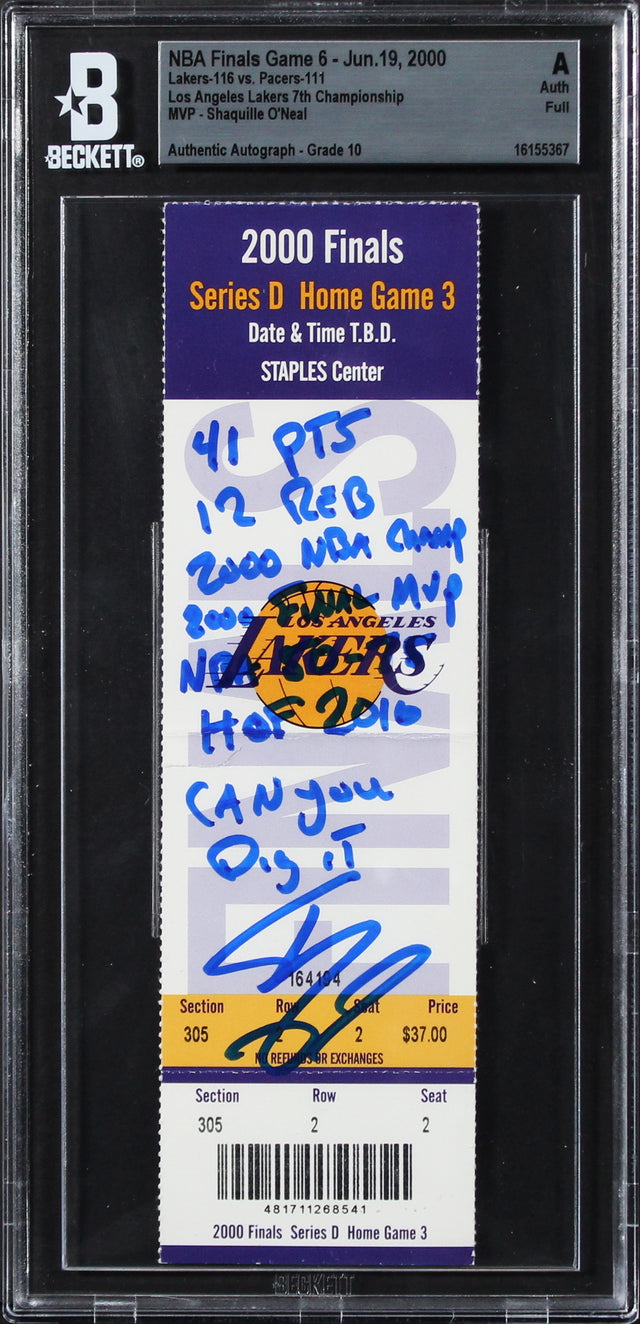 NBA Finals Game 6 - Jun.19, 2000
Lakers-116 vs. Pacers-111
Los Angeles Lakers 7th Championship
MVP - Shaquille O'Neal
Authentic Autograph - Grade 10
A
Auth
Full
16155367
B
BECKETT®
2000 Finals
Series D Home Game 3
Date & Time T.B.D.
STAPLES Center
FINALS
41 PTS
12 REB
2000 NBA Champ
2000 FINAL MVP
LOS ANGELES
LAKERS
NBA
HOF 2016
CAN you
Dig iT
164194
Section Row Seat Price
305 2 2 $37.00
NO REFUNDS OR EXCHANGES
Section Row Seat
305 2 2
481711268541
2000 Finals Series D Home Game 3
BECKETT